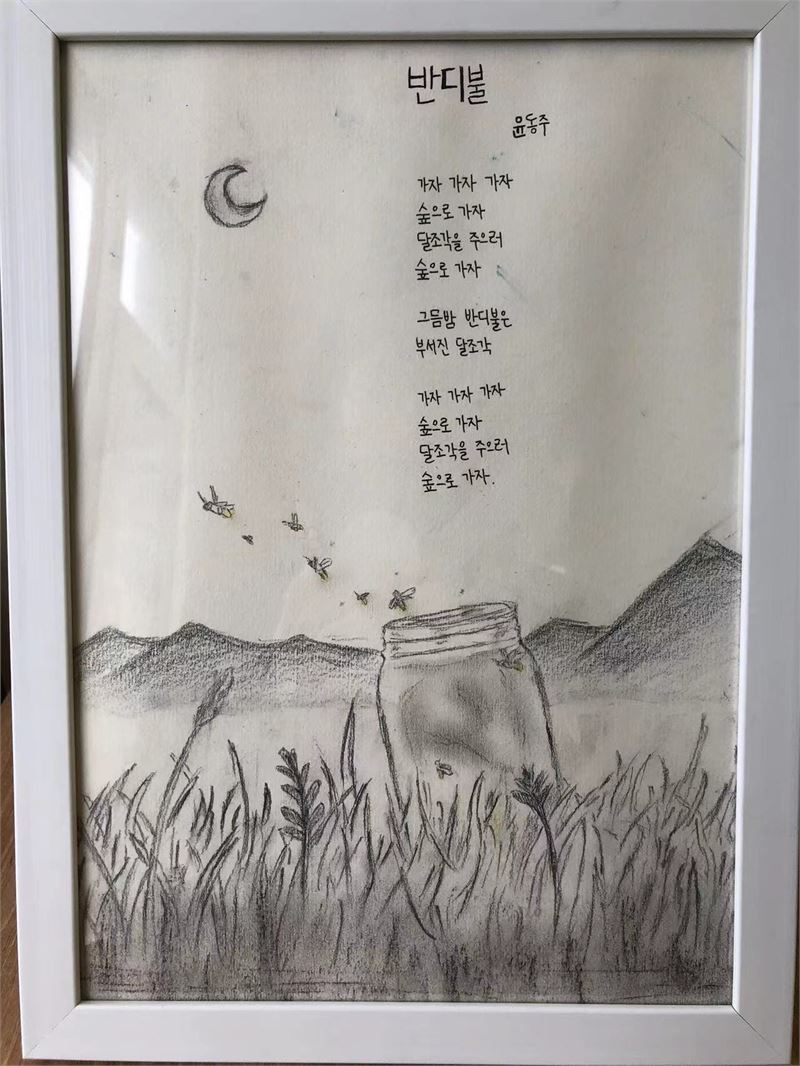 반디불
윤동주
가자 가자 가자
숲으로 가자
달조각을 주으러
숲으로 가자
그믐밤 반디불은
부서진 달조각
가자 가자 가자
숲으로 가자
달조각을 주으러
숲으로 가자.